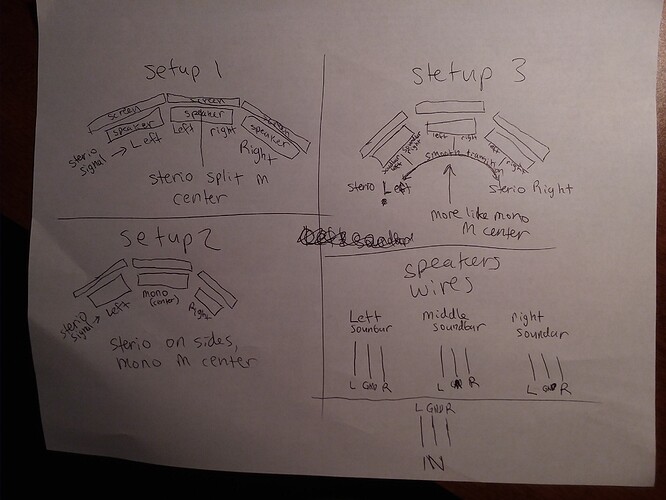 setup 1
screen
screen
screen
speaker
speaker
speaker
sterio signal → Left
Left right
Right
sterio split m
center
stetup 3
left right
left right
smooth transition
sterio Left
sterio Right
more like mono
M center
setup 2
sterio signal → Left
mono
(center)
Right
sterio on sides,
mono M center
speakers
wires
Left
sounbar
middle
soundbar
right
soundar
L GND R
L GND R
L GND R
L GND R
IN